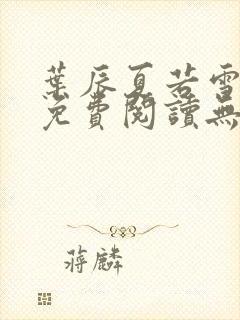 葉辰夏若雪
免費閱讀無
蔣麟